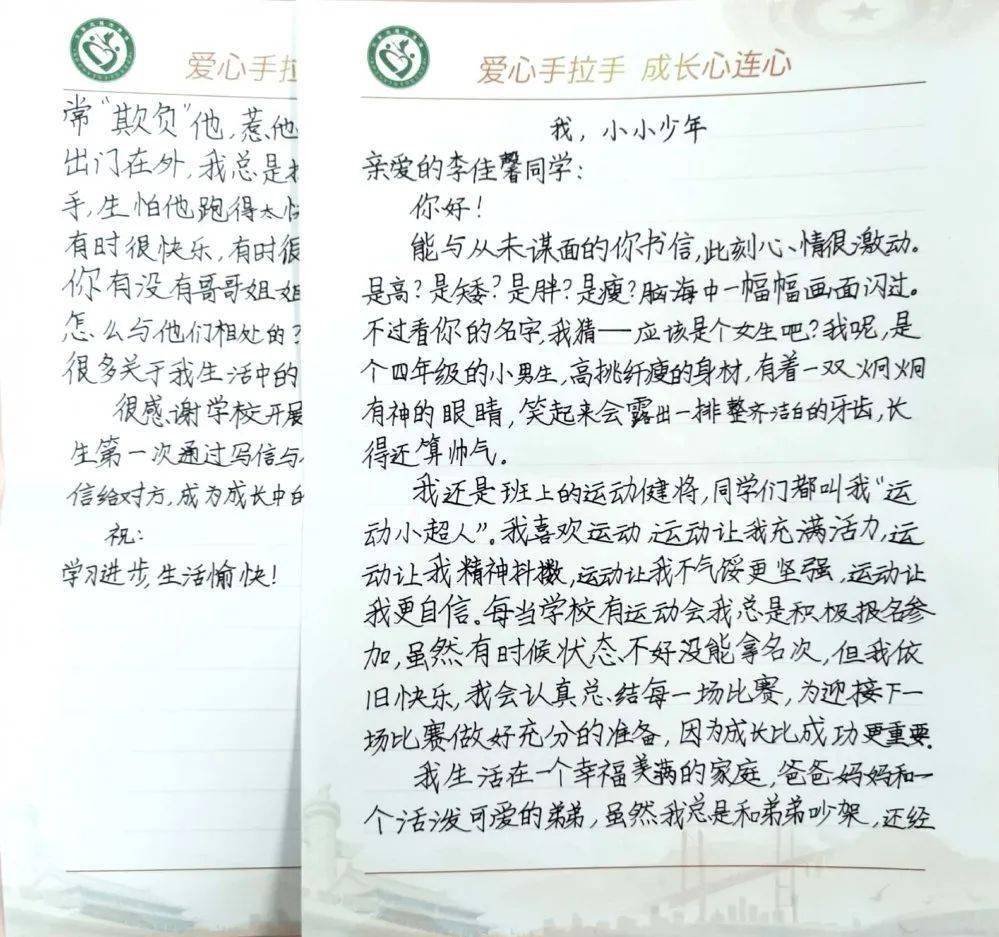 爱心手拉手 成长心连心
我，小小少年
亲爱的李佳馨同学：
你好！
能与从未谋面的你书信，此刻心情很激动。
是高？是矮？是胖？是瘦？脑海中一幅幅画面闪过。
不过看你的名字，我猜——应该是个女生吧？我呢，是
个四年级的小男生，高挑纤瘦的身材，有着一双炯炯
有神的眼睛，笑起来会露出一排整齐洁白的牙齿，长
得还算帅气。
我还是班上的运动健将，同学们都叫我“运
动小超人”。我喜欢运动，运动让我充满活力，运
动让我精神抖擞，运动让我不气馁更坚强，运动让
我更自信。每当学校有运动会我总是积极报名参
加，虽然有时候状态不好没能拿名次，但我依
旧快乐，我会认真总结每一场比赛，为迎接下一
场比赛做好充分的准备，因为成长比成功更重要。
我生活在一个幸福美满的家庭，爸爸妈妈和一
个活泼可爱的弟弟，虽然我总是和弟弟吵架，还经
爱心手拉
常“欺负”他，惹他
出门在外，我总是
手，生怕他跑得太快
有时很快乐，有时很
你有没有哥哥姐姐
怎么与他们相处的？
很多关于我生活中的
很感谢学校开展
生第一次通过写信与
信给对方，成为成长中的
祝：
学习进步，生活愉快！